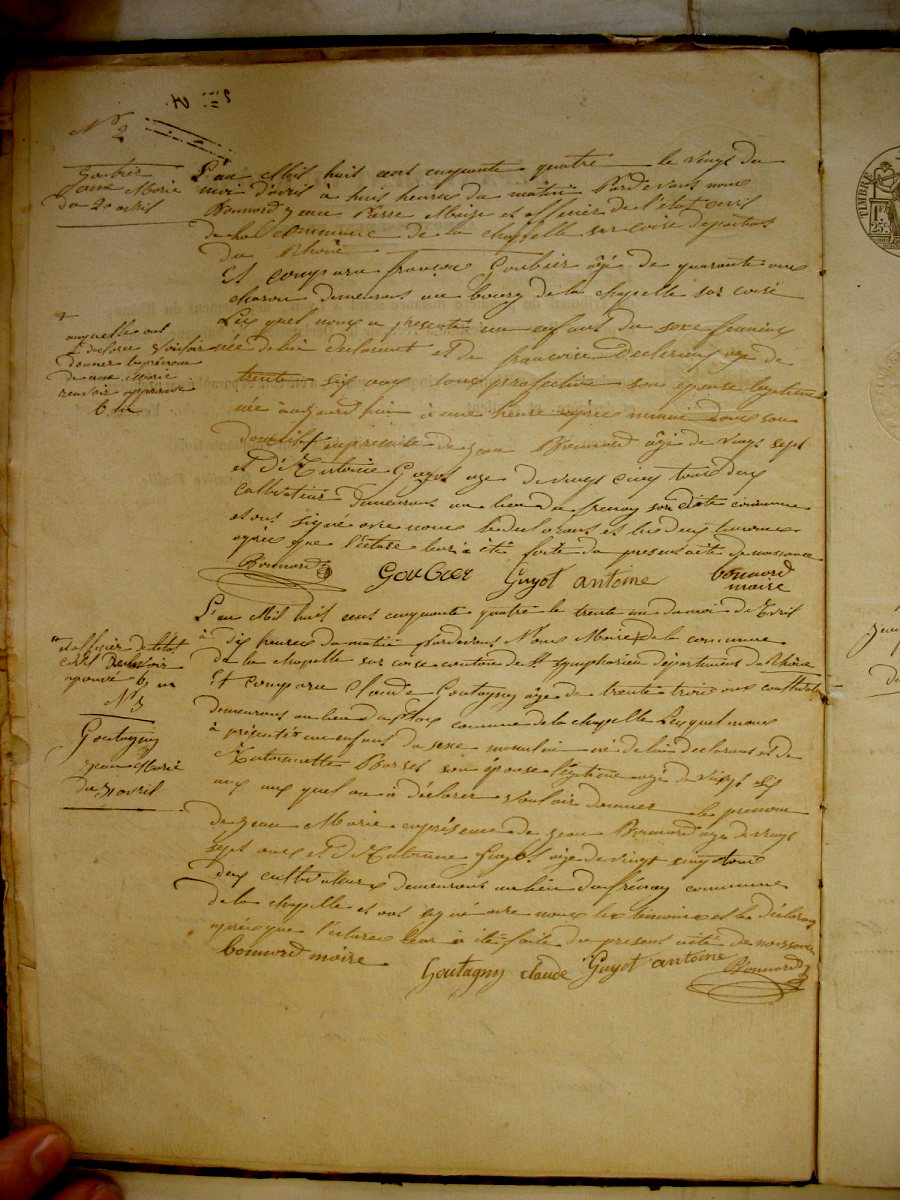 N° 2
Goubier
Jeane Marie
du 20 avril
L'an Mil huit cent cinquante quatre le vingt du
moi d'avril à huit heures du matin Pardevant nous
Bonnord Jean Pierre Maire et officier de l'état civil
de la Commune de la chapelle sur coise departent
du Rhône
Et comparu françois Goubier âgé de quarante ans
charon demeurant au bourg de la chapelle sur coise
Lequel nous a presenté un enfant du sexe feminin
née de lui declarant et de francoise age de
trente six ans sous profective son épouse legitime
née aujourd hui à une heure après minui dans son
domicile + en presence de Jean Bonnord âgé de vingt sept
et D'Antoine Guyot age de vingt cinq tous deux
cultivateur demeurant au lieu du frenay sur dite commune
et ont signé avec nous le declarant et les deux temoins
après que lecture leur a été faite du present acte de naissance
+
auquelle ont
declaré vouloir
donner le prénom
de Jeane Marie
renvoie approuvé
b m
Bonnord Goubier Guyot antoine bonnord
maire
L'an Mil huit cent cinquante quatre le trente un du moi d'Avril
à dix heures du matin pardevant Nous Maire de la commune
de la chapelle sur coise canton de St symphorien département du Rhône
Et comparu Claude Goutagny âge de trente trois ans cultivat
demeurant au lieu du commune de la chapelle Lequel nous
à présenté un enfant du sexe masculin né de lui declarant et de
Antoinnette son épouse légitime agé de vingt six
ans au quel on à déclarer vouloir donner le prenom
de Jean Marie en présence de Jean Bonnord age de vingt
sept ans et D'Antoinne Guyot âge de vingt cinq tous
deux cultivateurs demeurant au lieu du frénay commune
de la chapelle et ont signé avec nous les temoins et le Declarant
après que lecture leur à été faite du present acte de naissance
et officier de l'etat
civil renvoir
apouvé b m
N° 3
Goutagny
Jean Marie
du 31 avril
bonnord maire Goutagny claude Guyot antoine Bonnord
TIMBRE
1F
25c